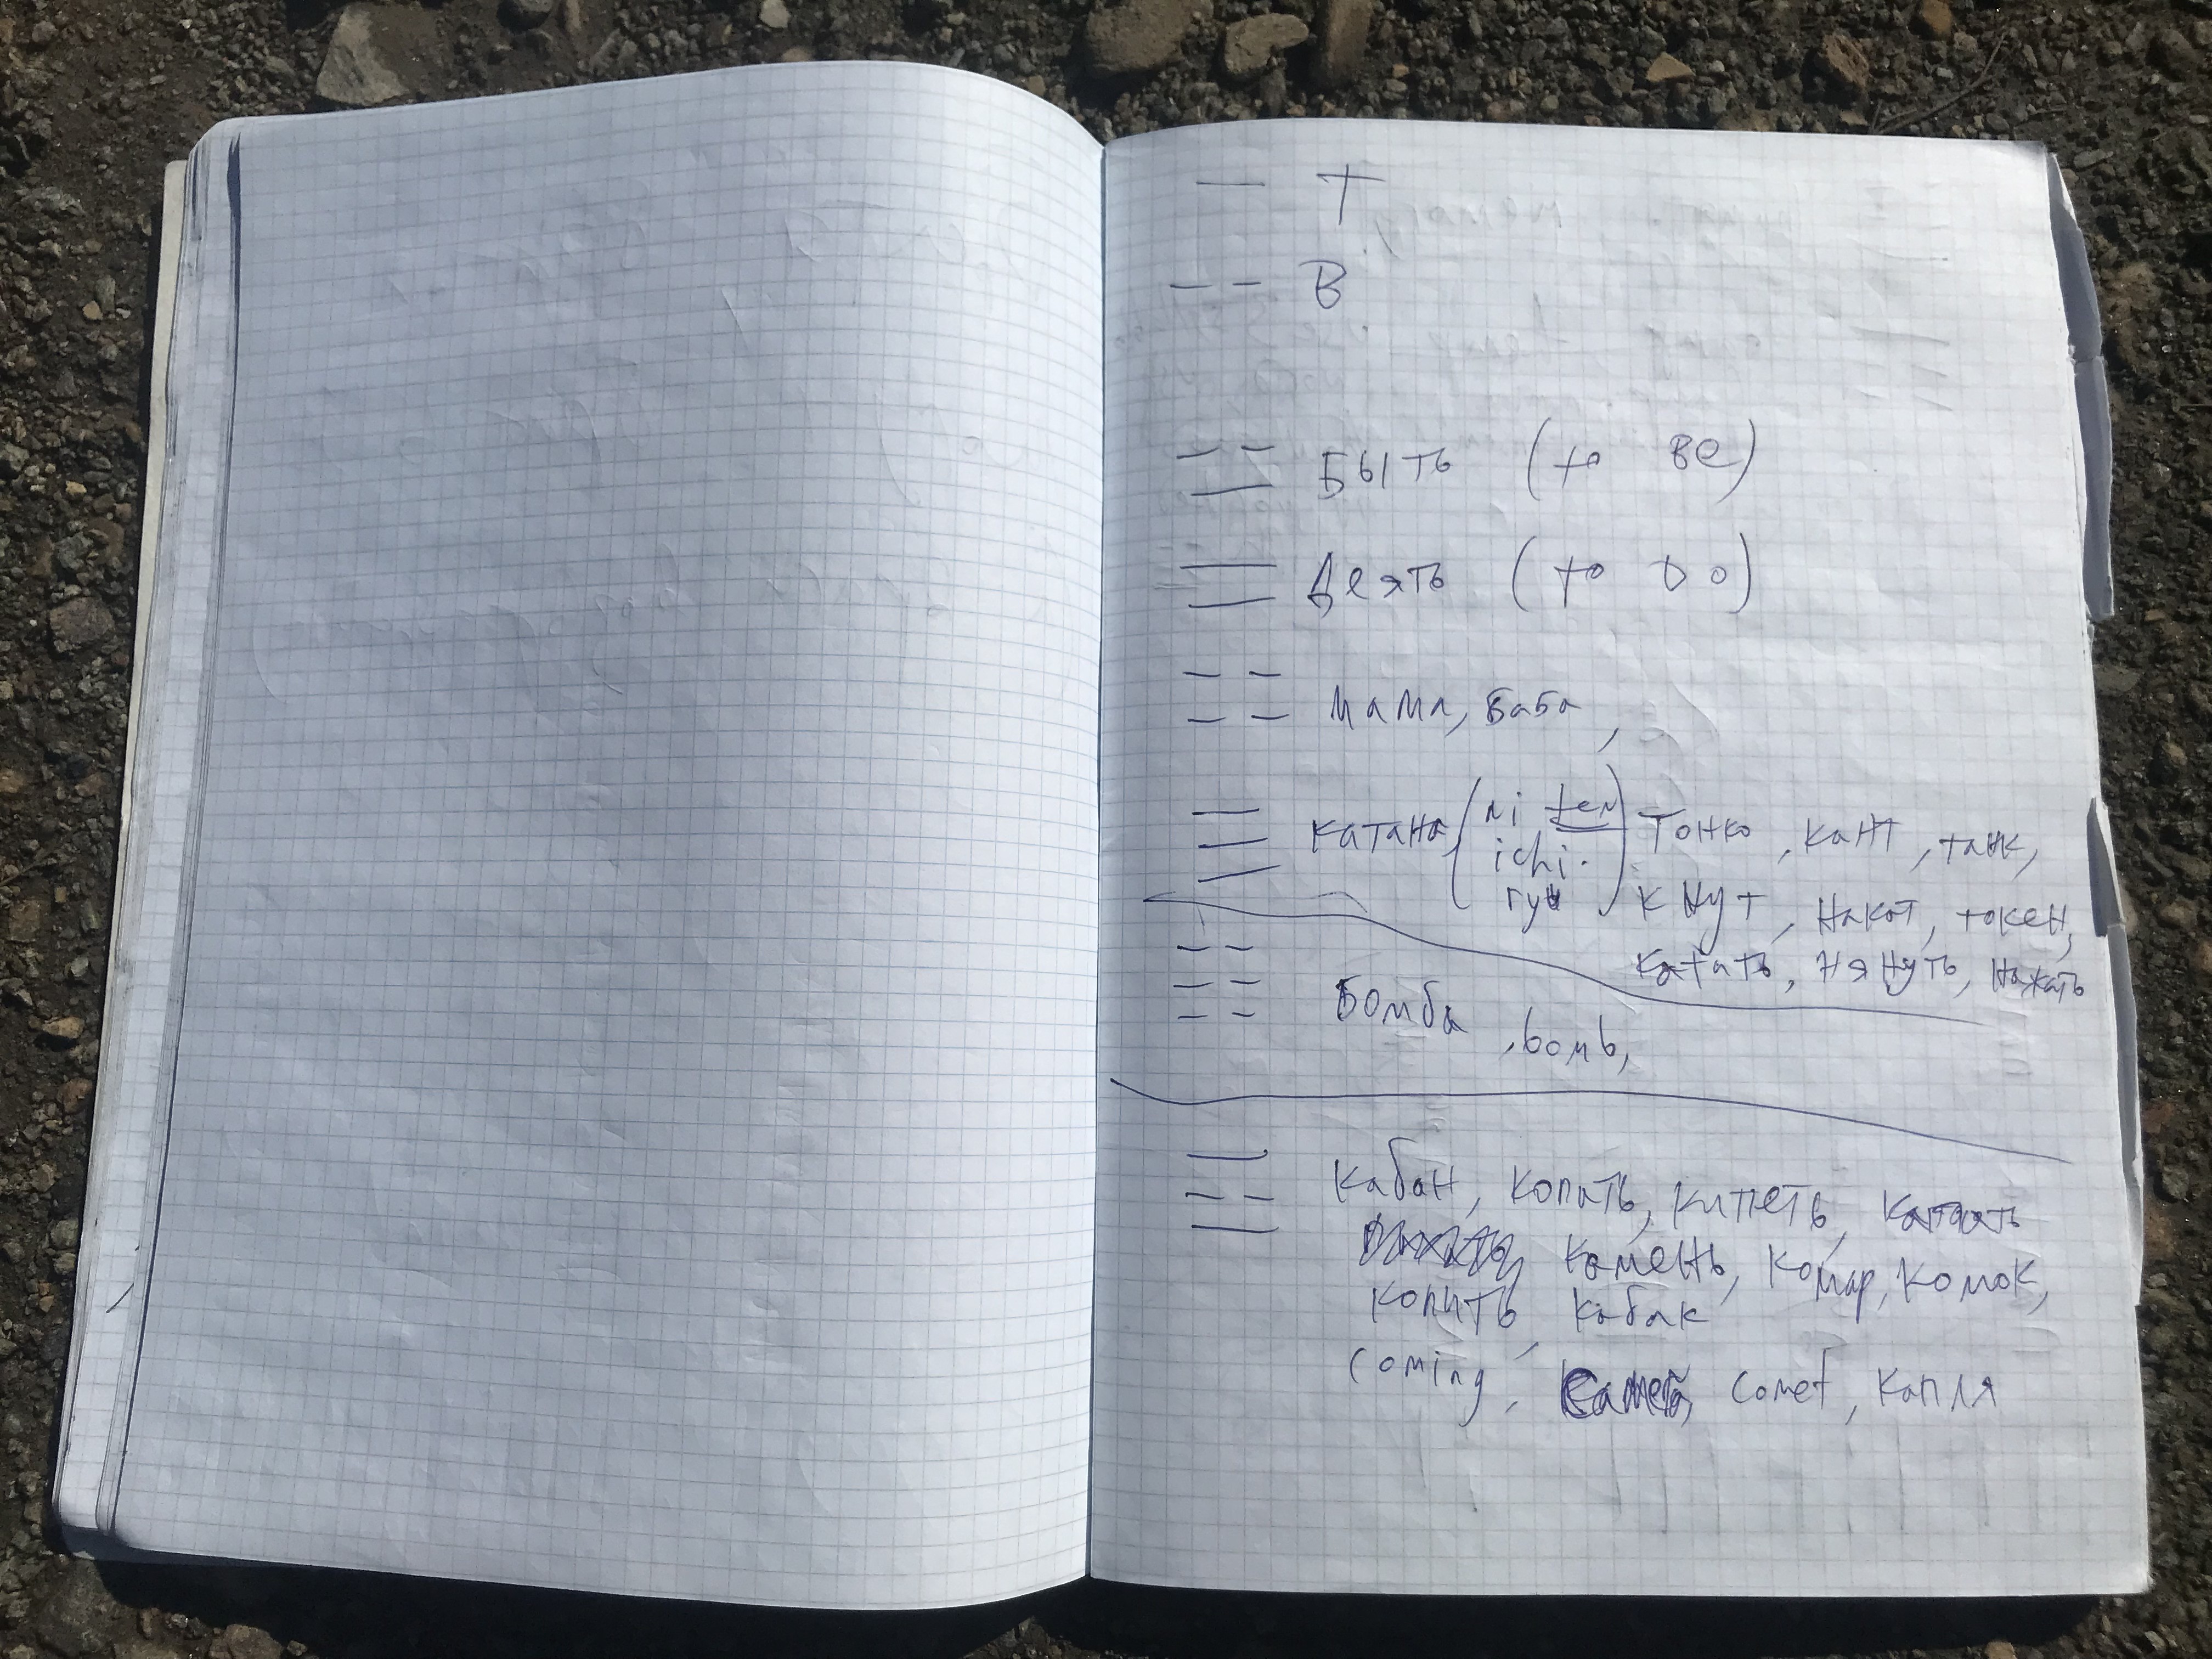 — T
– – B
– – Быть (to BE)
—
— Деять (to Do)
—
– – мама, баба,
– –
— катана (ni ten ichi. ryu) Тонко, кант, танк,
— кнут, накот, токен,
— катать, нянуть, нажать
– –
– – Бомба, bomb,
– –
— кабан, копать, кипеть, катать
– – камень, комар, комок,
— копить, кабак
coming, comet, капля